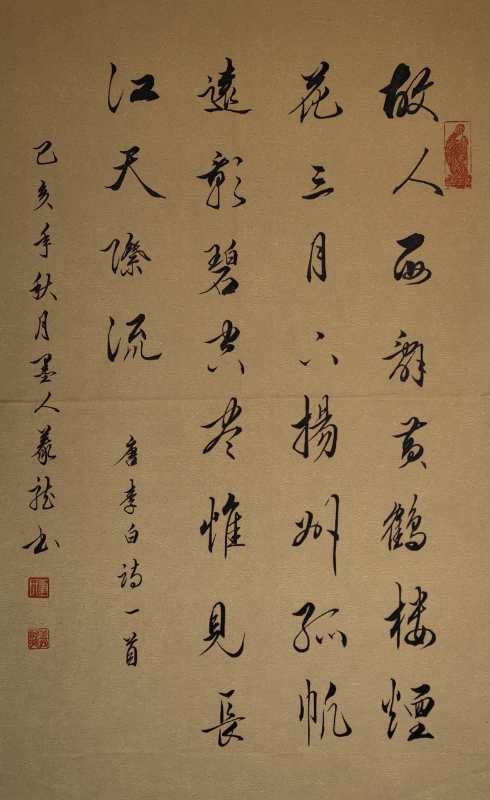 故人西辭黄鶴楼煙
花三月下揚州孤帆
遠影碧空尽惟見長
江天際流
唐李白詩一首
己亥年秋月墨人義龍书